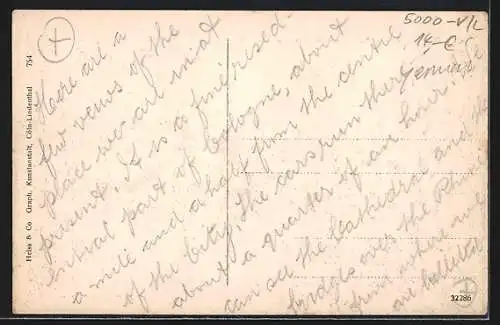 5000-V/L
14,-C
Here are a
few views of the
place we are in at
present. It is a fine resed-
ential part of Cologne, about
a mile and a half from the centre
of the City. The cars run there in
about a quarter of an hour. We
can see the Cathedral and the
bridges over the Rhine
from where we
are billeted
Heiss & Co Graph. Kunstanstalt, Cöln-Lindenthal
754
32286